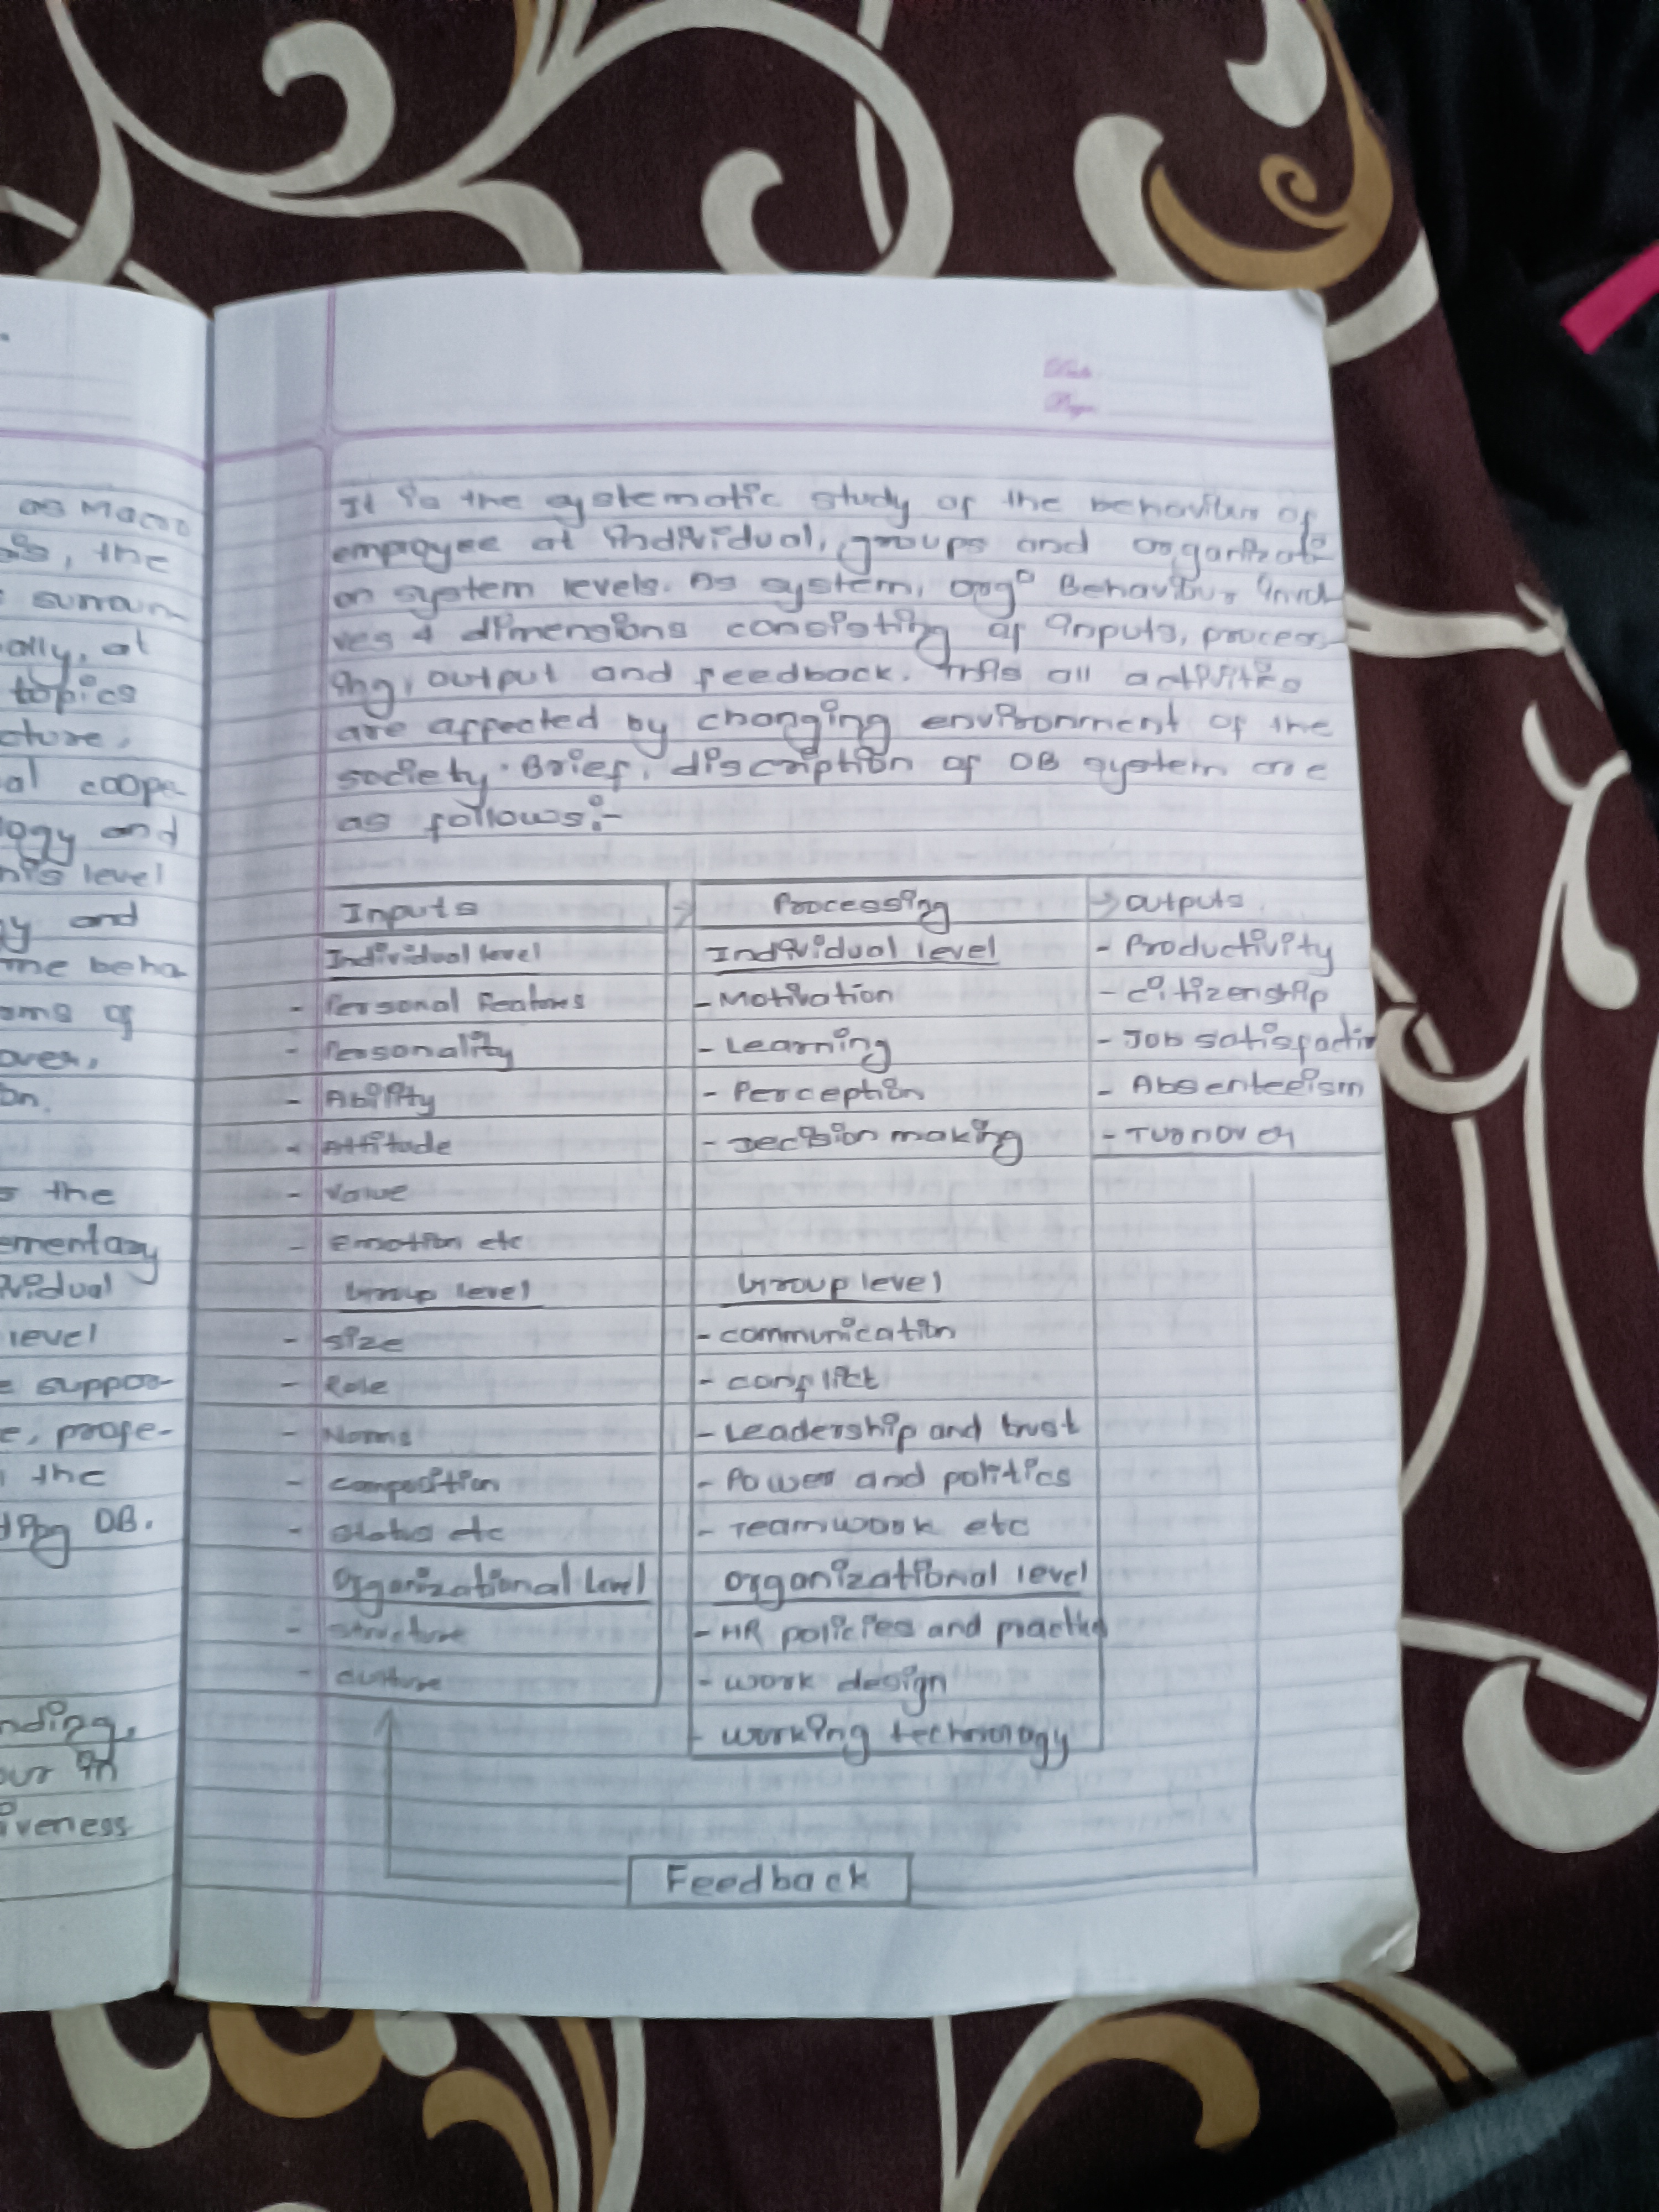 as Macro
the
surroun
ally, at
topics
cture,
al coope
ogy and
his level
y and
me beha
oms of
over,
on.
s the
ementary
vidual
level
e suppor-
e, profe-
the
ding OB.
nding,
our in
iveness
Date
Page
It is the systematic study of the behaviour of
employee at individual, groups and organizati
on system levels. As system, orgn Behaviour invol
ves 4 dimensions consisting of inputs, process
ing, output and feedback. This all activities
are affected by changing environment of the
society. Brief, discription of OB system are
as follows:-
Inputs → Processing → outputs
Individual level Individual level - Productivity
- Personal Features - Motivation - citizenship
- Personality - Learning - Job satisfaction
- Ability - Perception - Absenteeism
- Attitude - Decision making - Turnover
- Value
- Emotion etc
Group level Group level
- size - communication
- Role - conflict
- Norms - Leadership and trust
- composition - Power and politics
- status etc - Teamwork etc
Organizational level organizational level
- structure - HR policies and practice
- culture - work design
- working technology
Feedback